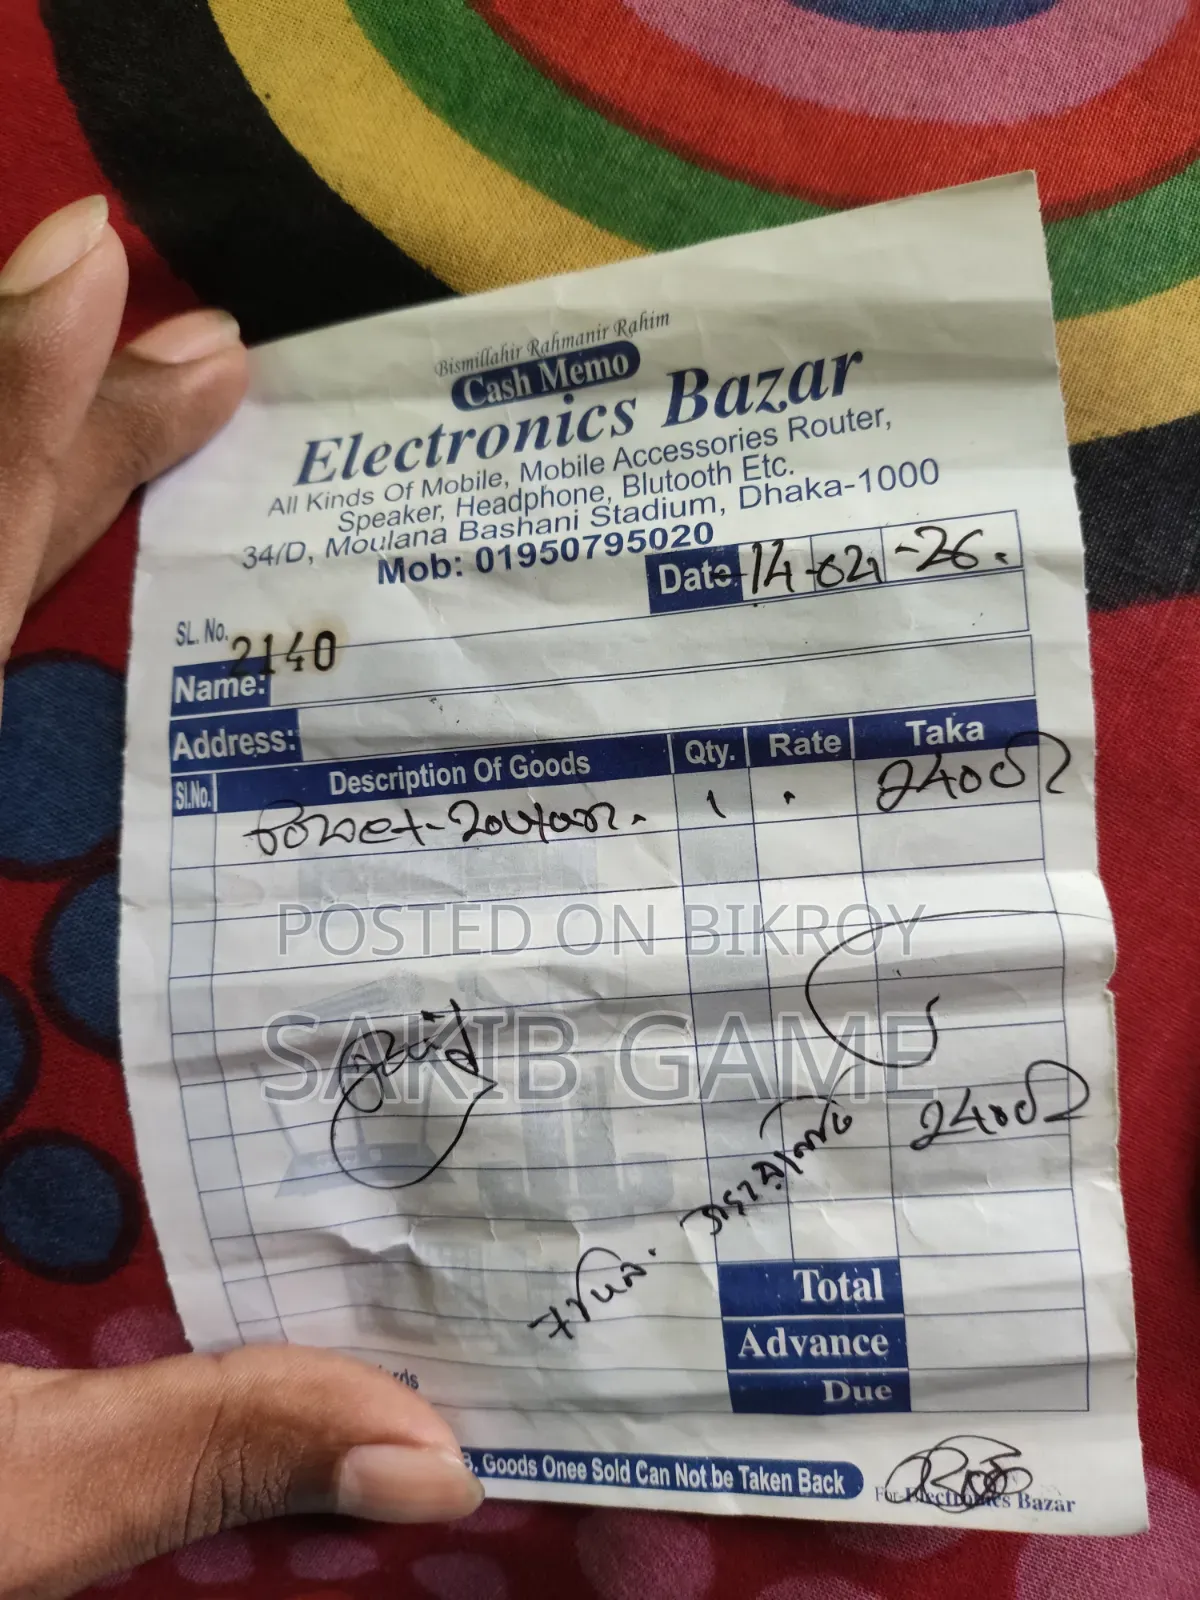 Bismillahir Rahmanir Rahim
Cash Memo
Electronics Bazar
All Kinds Of Mobile, Mobile Accessories Router,
Speaker, Headphone, Blutooth Etc.
34/D, Moulana Bashani Stadium, Dhaka-1000
Mob: 01950795020
Date 14-02-26.
SL. No. 2140
Name:
Address:
Sl.No. Description Of Goods Qty. Rate Taka
POSTED ON BIKROY
SAKIB GAME
Total
Advance
Due
B. Goods Onee Sold Can Not be Taken Back
For Electronics Bazar